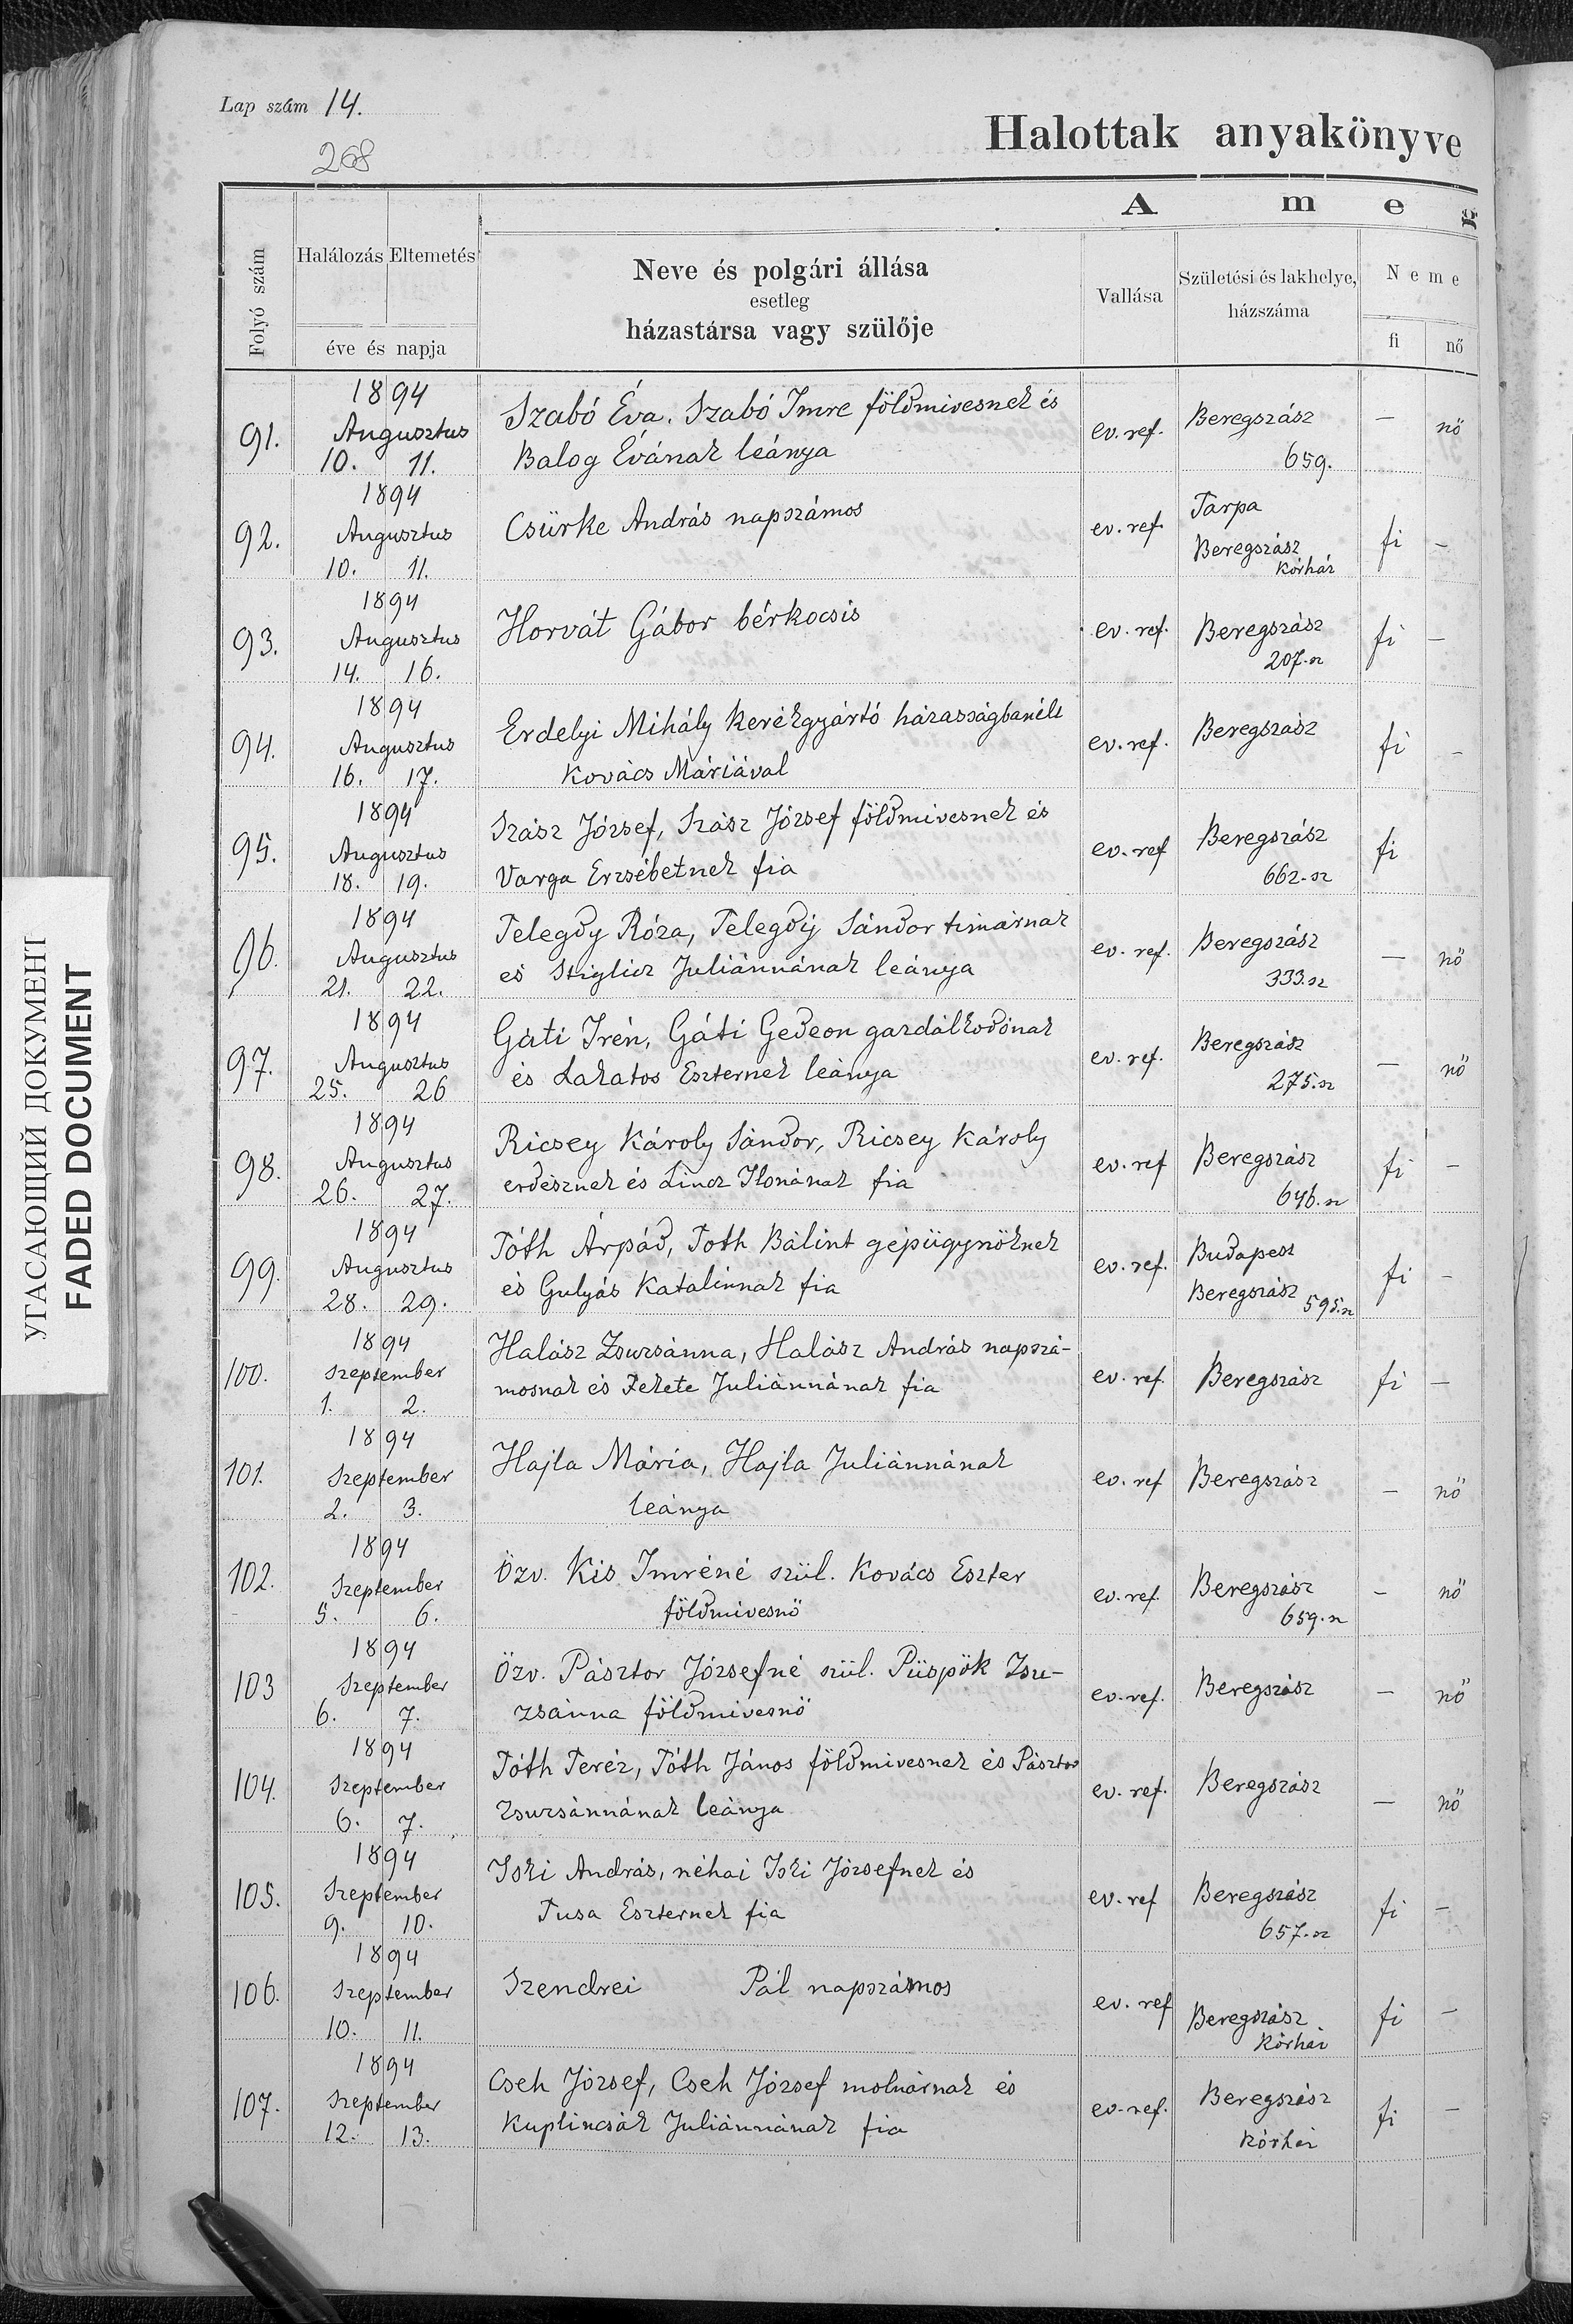 Lap szám 14.
268
Halottak anyakönyve
A m e g
Folyó szám
Halálozás Eltemetés
éve és napja
Neve és polgári állása
esetleg
házastársa vagy szülője
Vallása
Születési és lakhelye,
házszáma
Neme
fi nő
1894
91. Augusztus
10. 11.
Szabó Éva. Szabó Imre földmivesnek és
Balog Évának leánya
ev. ref.
Beregszász
659.
— nő
1894
92. Augusztus
10. 11.
Csürke András napszámos
ev. ref.
Tarpa
Beregszász
kórház
fi —
1894
93. Augusztus
14. 16.
Horvát Gábor bérkocsis
ev. ref.
Beregszász
207.sz
fi —
1894
94. Augusztus
16. 17.
Erdelyi Mihály kerékgyártó házasságbanélt
Kovács Máriával
ev. ref.
Beregszász
fi —
1894
95. Augusztus
18. 19.
Szász József, Szász József földmivesnek és
Varga Erzsébetnek fia
ev. ref
Beregszász
662.sz
fi
1894
96. Augusztus
21. 22.
Telegdy Róza, Telegdy Sándor timárnak
és Stiglicz Juliánnának leánya
ev. ref.
Beregszász
333.sz
— nő
1894
97. Augusztus
25. 26
Gáti Irén, Gáti Gedeon gazdálkodónak
és Lakatos Eszternek leánya
ev. ref.
Beregszász
275.sz
— nő
1894
98. Augusztus
26. 27.
Ricsey Károly Sándor, Ricsey Károly
erdésznek és Lincz Ilonának fia
ev. ref
Beregszász
646.sz
fi —
1894
99. Augusztus
28. 29.
Tóth Árpád, Toth Bálint gépügynöknek
és Gulyás Katalinnak fia
ev. ref.
Budapest
Beregszász 595.sz
fi —
1894
100. Szeptember
1. 2.
Halász Zsuzsánna, Halász András napszá-
mosnak és Fekete Juliánnának fia
ev. ref.
Beregszász
fi —
1894
101. Szeptember
2. 3.
Hajla Mária, Hajla Juliánnának
leánya
ev. ref
Beregszász
— nő
1894
102. Szeptember
5. 6.
Özv. Kis Imréné szül. Kovács Eszter
földmivesnő
ev. ref.
Beregszász
659.sz
— nő
1894
103 Szeptember
6. 7.
Özv. Pásztor Józsefné szül. Püspök Zsu-
zsánna földmivesnő
ev. ref.
Beregszász
— nő
1894
104. Szeptember
6. 7.
Tóth Teréz, Tóth János földmivesnek és Pásztor
Zsuzsánnának leánya
ev. ref.
Beregszász
— nő
1894
105. Szeptember
9. 10.
Iski András, néhai Iski Józsefnek és
Tusa Eszternek fia
ev. ref
Beregszász
657.sz
fi —
1894
106. Szeptember
10. 11.
Szendrei Pál napszámos
ev. ref
Beregszász
kórház
fi —
1894
107. Szeptember
12. 13.
Cseh József, Cseh József molnárnak és
Kuplincsák Juliánnának fia
ev. ref.
Beregszász
kórház
fi —
УГАСАЮЩИЙ ДОКУМЕНТ
FADED DOCUMENT